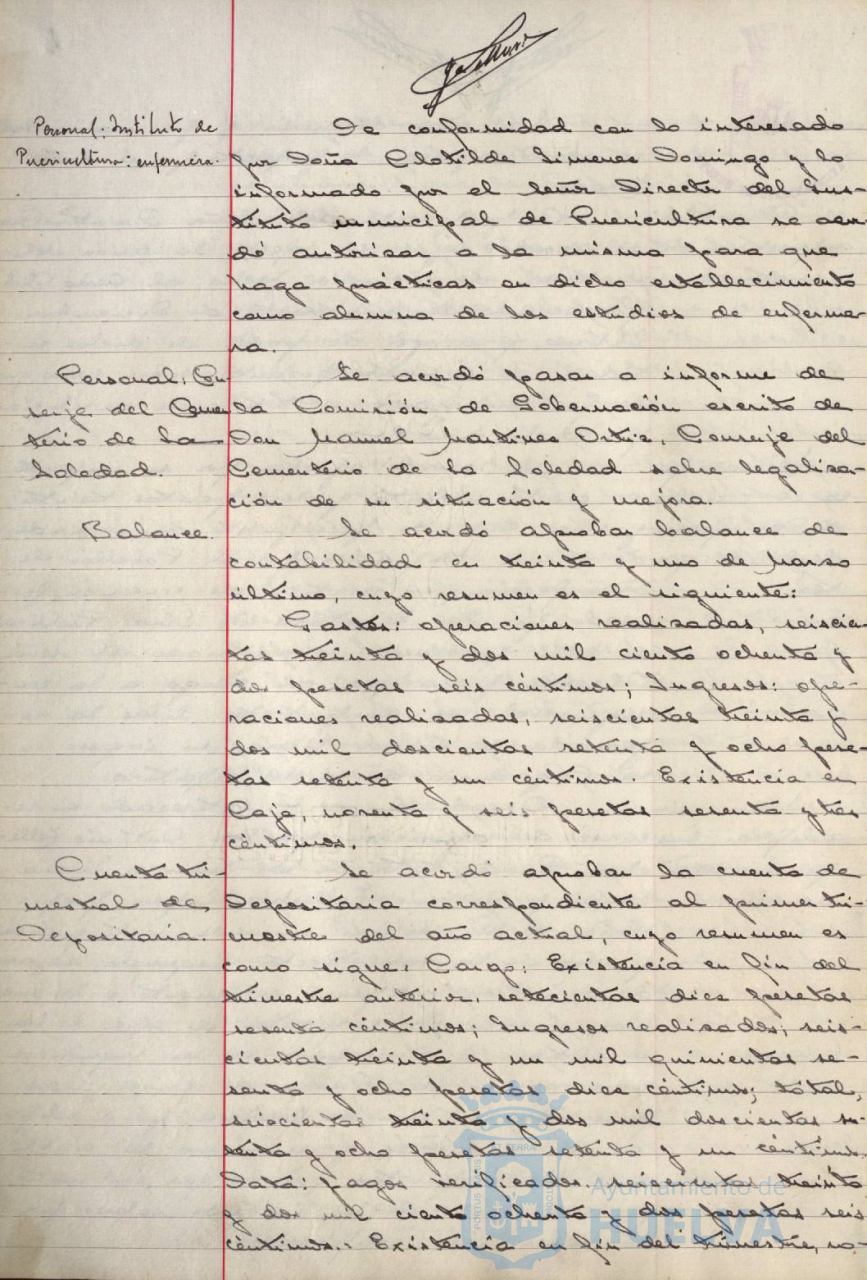 Personal: Instituto de
Puericultura: enfermera.
De conformidad con lo interesado
por Doña Clotilde Jimenez Domingo y lo
informado por el señor Director del Ins-
tituto municipal de Puericultura se acor-
dó autorizar a la misma para que
haga prácticas en dicho establecimiento
como alumna de los estudios de enferme-
ra.
Personal: Con-
serje del Cemen
terio de La
Soledad.
Se acordó pasar a informe de
la Comisión de Gobernación escrito de
Don Manuel Martinez Ortiz, Conserje del
Cementerio de La Soledad sobre legaliza-
ción de su situación y mejora.
Balance.
Se acordó aprobar balance de
contabilidad en treinta y uno de Marzo
último, cuyo resumen es el siguiente:
Gastos: operaciones realizadas, seiscien-
tas treinta y dos mil ciento ochenta y
dos pesetas seis céntimos; Ingresos: ope-
raciones realizadas, seiscientas treinta y
dos mil doscientas setenta y ocho pese-
tas setenta y un céntimos. Existencia en
Caja, noventa y seis pesetas sesenta y tres
céntimos.
Cuenta tri-
mestral de
Depositaría.
Se acordó aprobar la cuenta de
Depositaría correspondiente al primer tri-
mestre del año actual, cuyo resumen es
como sigue: Cargo: Existencia en fin del
trimestre anterior, setecientas diez pesetas
sesenta céntimos; Ingresos realizados, seis-
cientas treinta y un mil quinientas se-
senta y ocho pesetas diez céntimos; total,
seiscientas treinta y dos mil doscientas se-
tenta y ocho pesetas setenta y un céntimos.
Data: pagos verificados, seiscientas treinta
y dos mil ciento ochenta y dos pesetas seis
céntimos. Existencia en fin del trimestre, no-
Ayuntamiento de
HUELVA